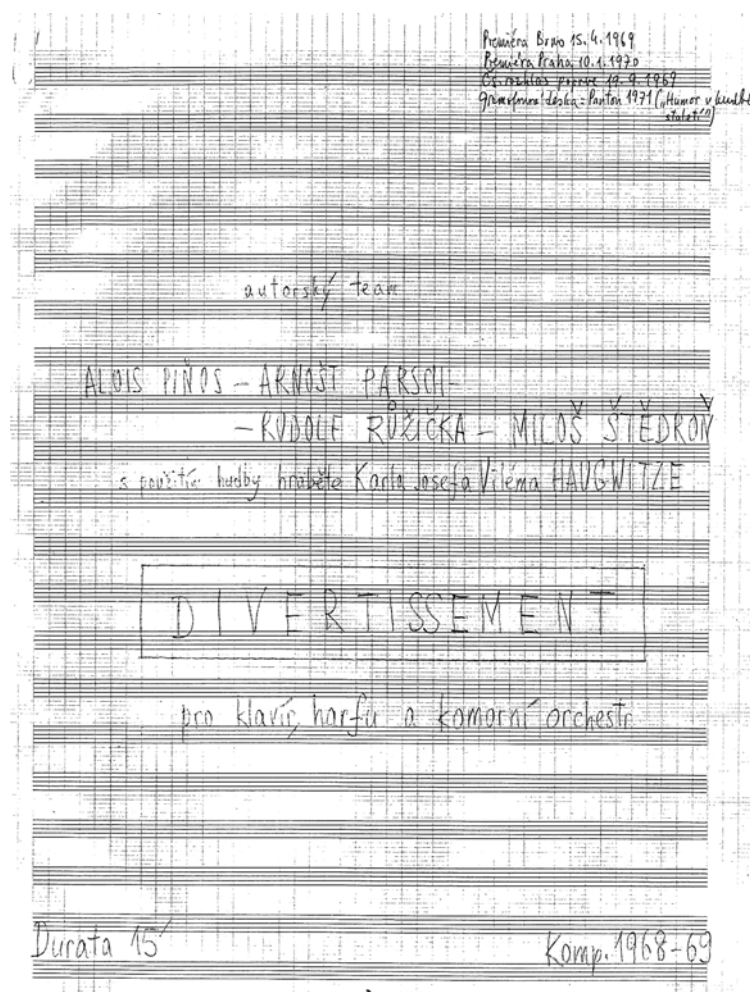 Premiéra Brno 15. 4. 1969
Premiéra Praha 10. 1. 1970
Čs. rozhlas poprvé 19. 9. 1969
gramofonová deska = Panton 1971 („Humor v hudbě
staletí“)
autorský team
ALOIS PIŇOS – ARNOŠT PARSCH –
– RUDOLF RŮŽIČKA – MILOŠ ŠTĚDROŇ
s použitím hudby hraběte Karla Josefa Viléma HAUGWITZE
DIVERTISSEMENT
pro klavír, harfu a komorní orchestr
Durata 15´
Komp. 1968-69